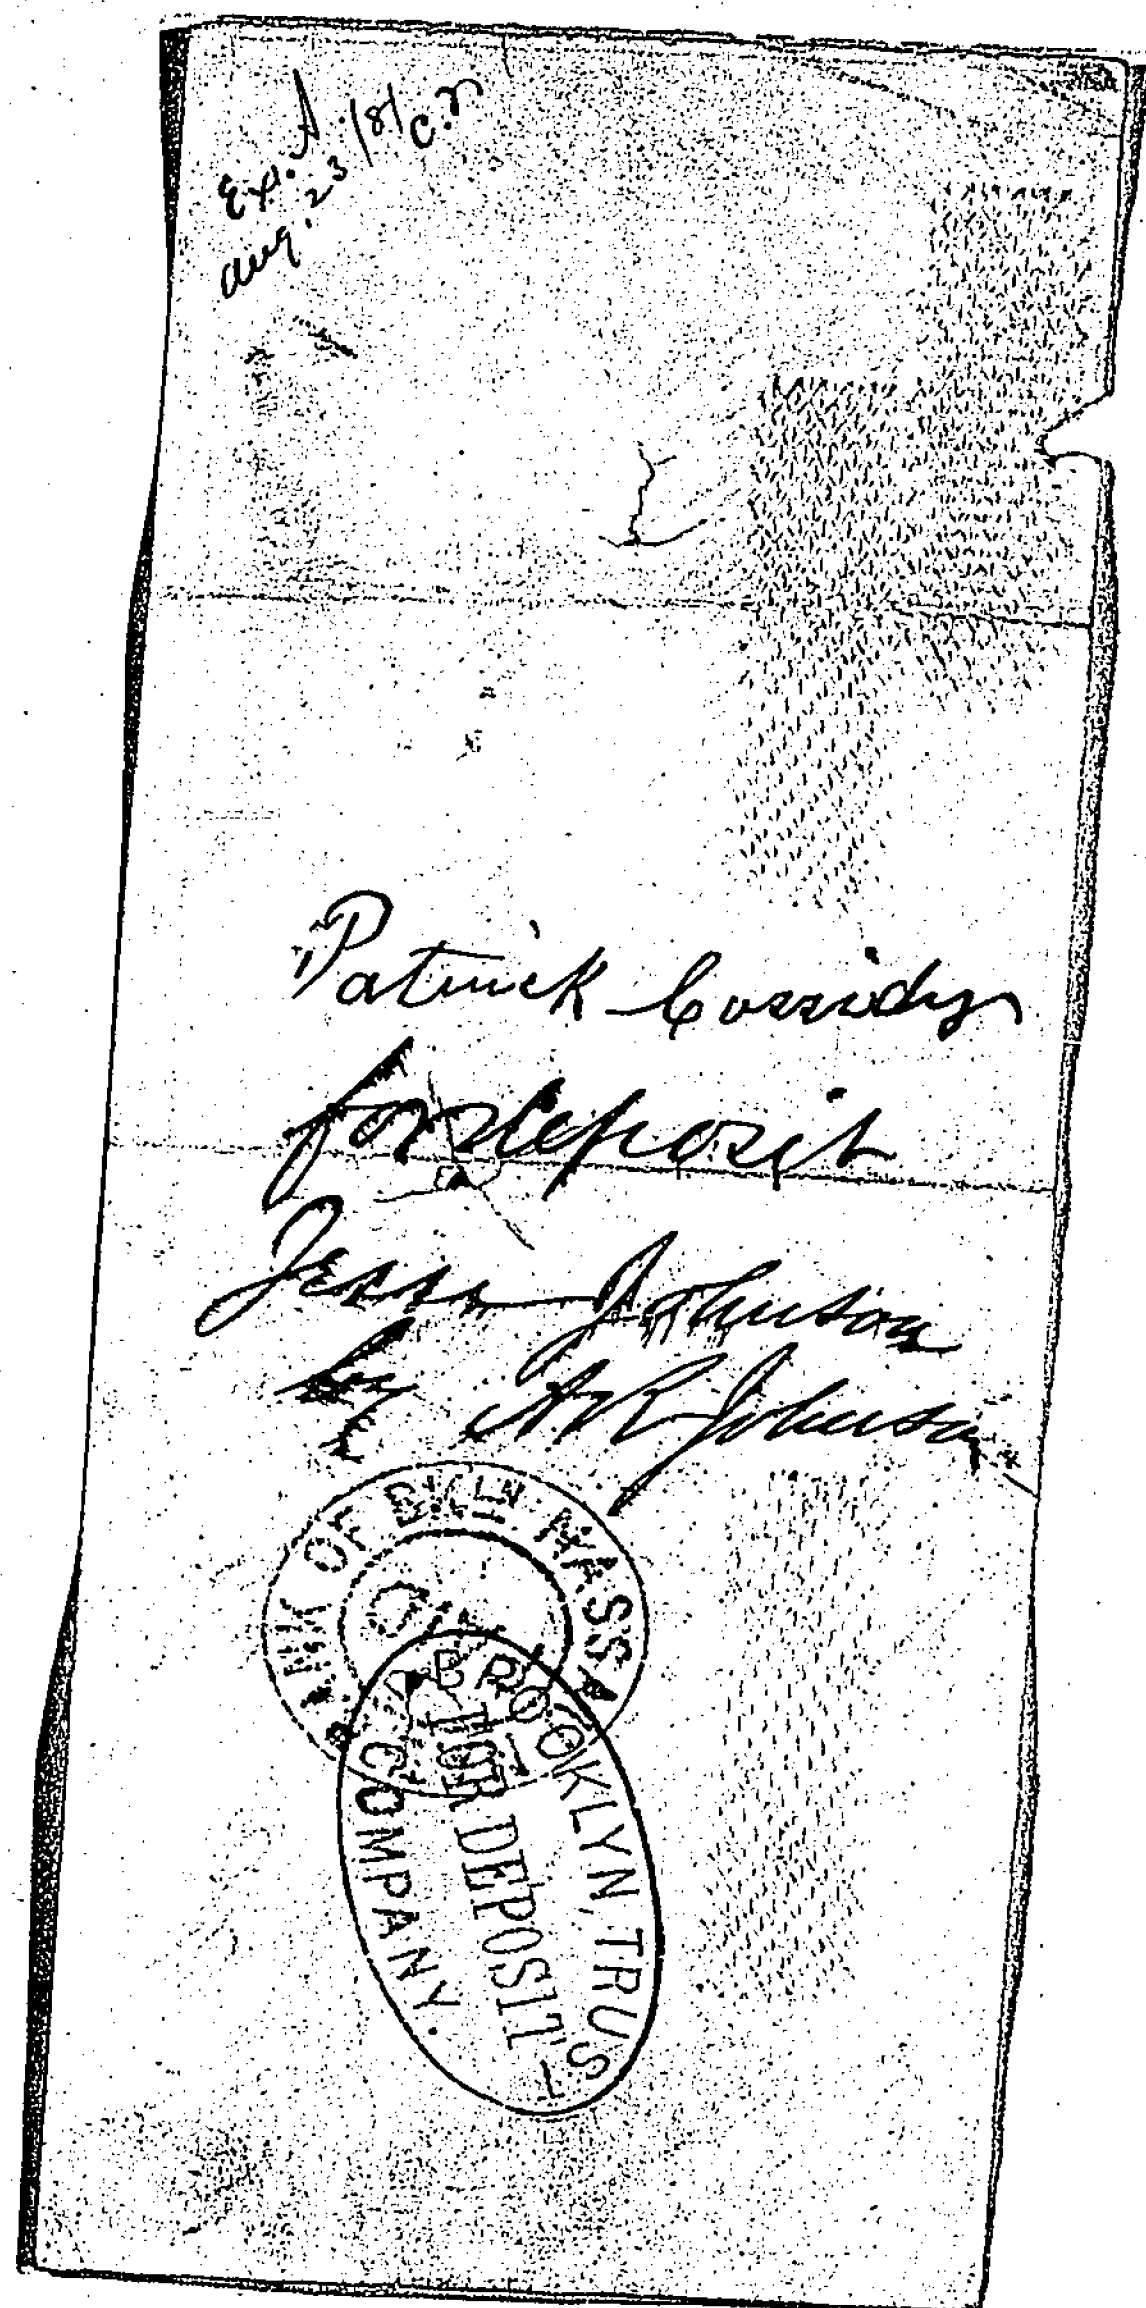 Ex. A.
Aug. 23/81 C.M
Patrick Cassidy
for deposit
Jesse Johnson
by A R Johnson
BANK OF B'KLN. MASSA
BROOKLYN TRUST
COMPANY.
FOR DEPOSIT